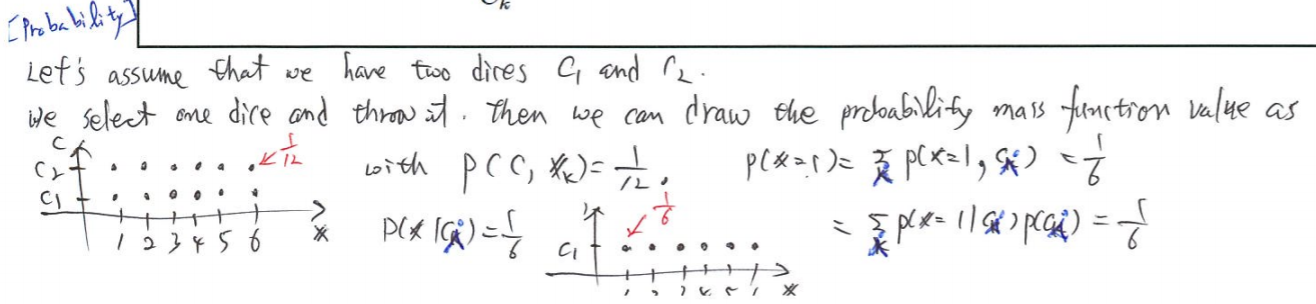 k
[Probability]
Let's assume that we have two dices C₁ and C₂.
We select one dice and throw it. Then we can draw the probability mass function value as
C
C₂
C₁
1 2 3 4 5 6 x
1/12
with P(C, x_k) = 1/12.
P(x=1) = Σ_k P(x=1, C_k) = 1/6
P(x|C_k) = 1/6
C₁
1/6
1 2 3 4 5 x
= Σ_k P(x=1|C_k) P(C_k) = 1/6